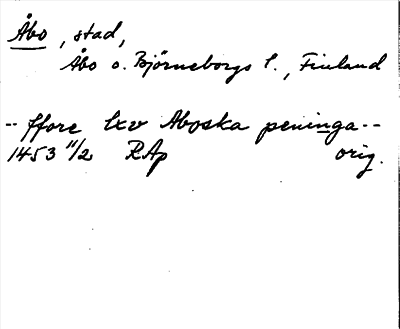 Åbo, stad,
Åbo o. Björneborgs l., Finland
-- ffore lxv Aboska peninga --
1453 11/2 RAp orig.